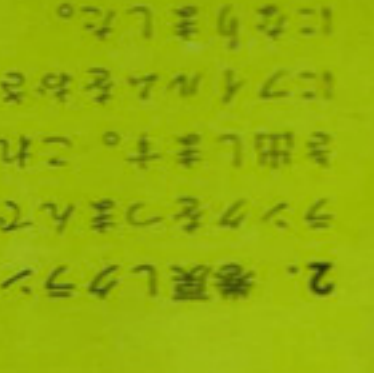 2. 巻戻しクラン
ランクをつまんで
き出します。これ
にフイルムをおさ
になりました。